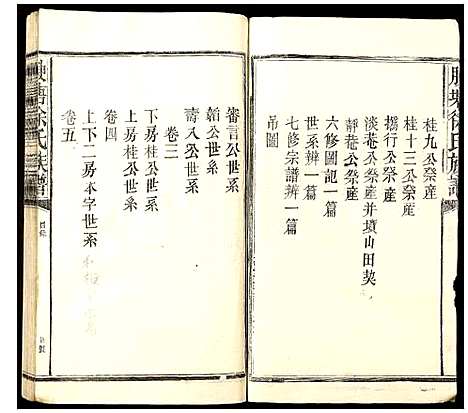 桂九公祭產
桂十三公祭產
櫾行公祭產
淡菴公祭產并墳山田契
靜菴公祭產
六修圖記一篇
世系辨一篇
七修宗譜辨一篇
吊圖
審言公世系
韜公世系
壽八公世系
卷三
下房桂公世系
上房桂公世系
卷四
上下二房本字世系
卷五
徐氏族譜
目錄